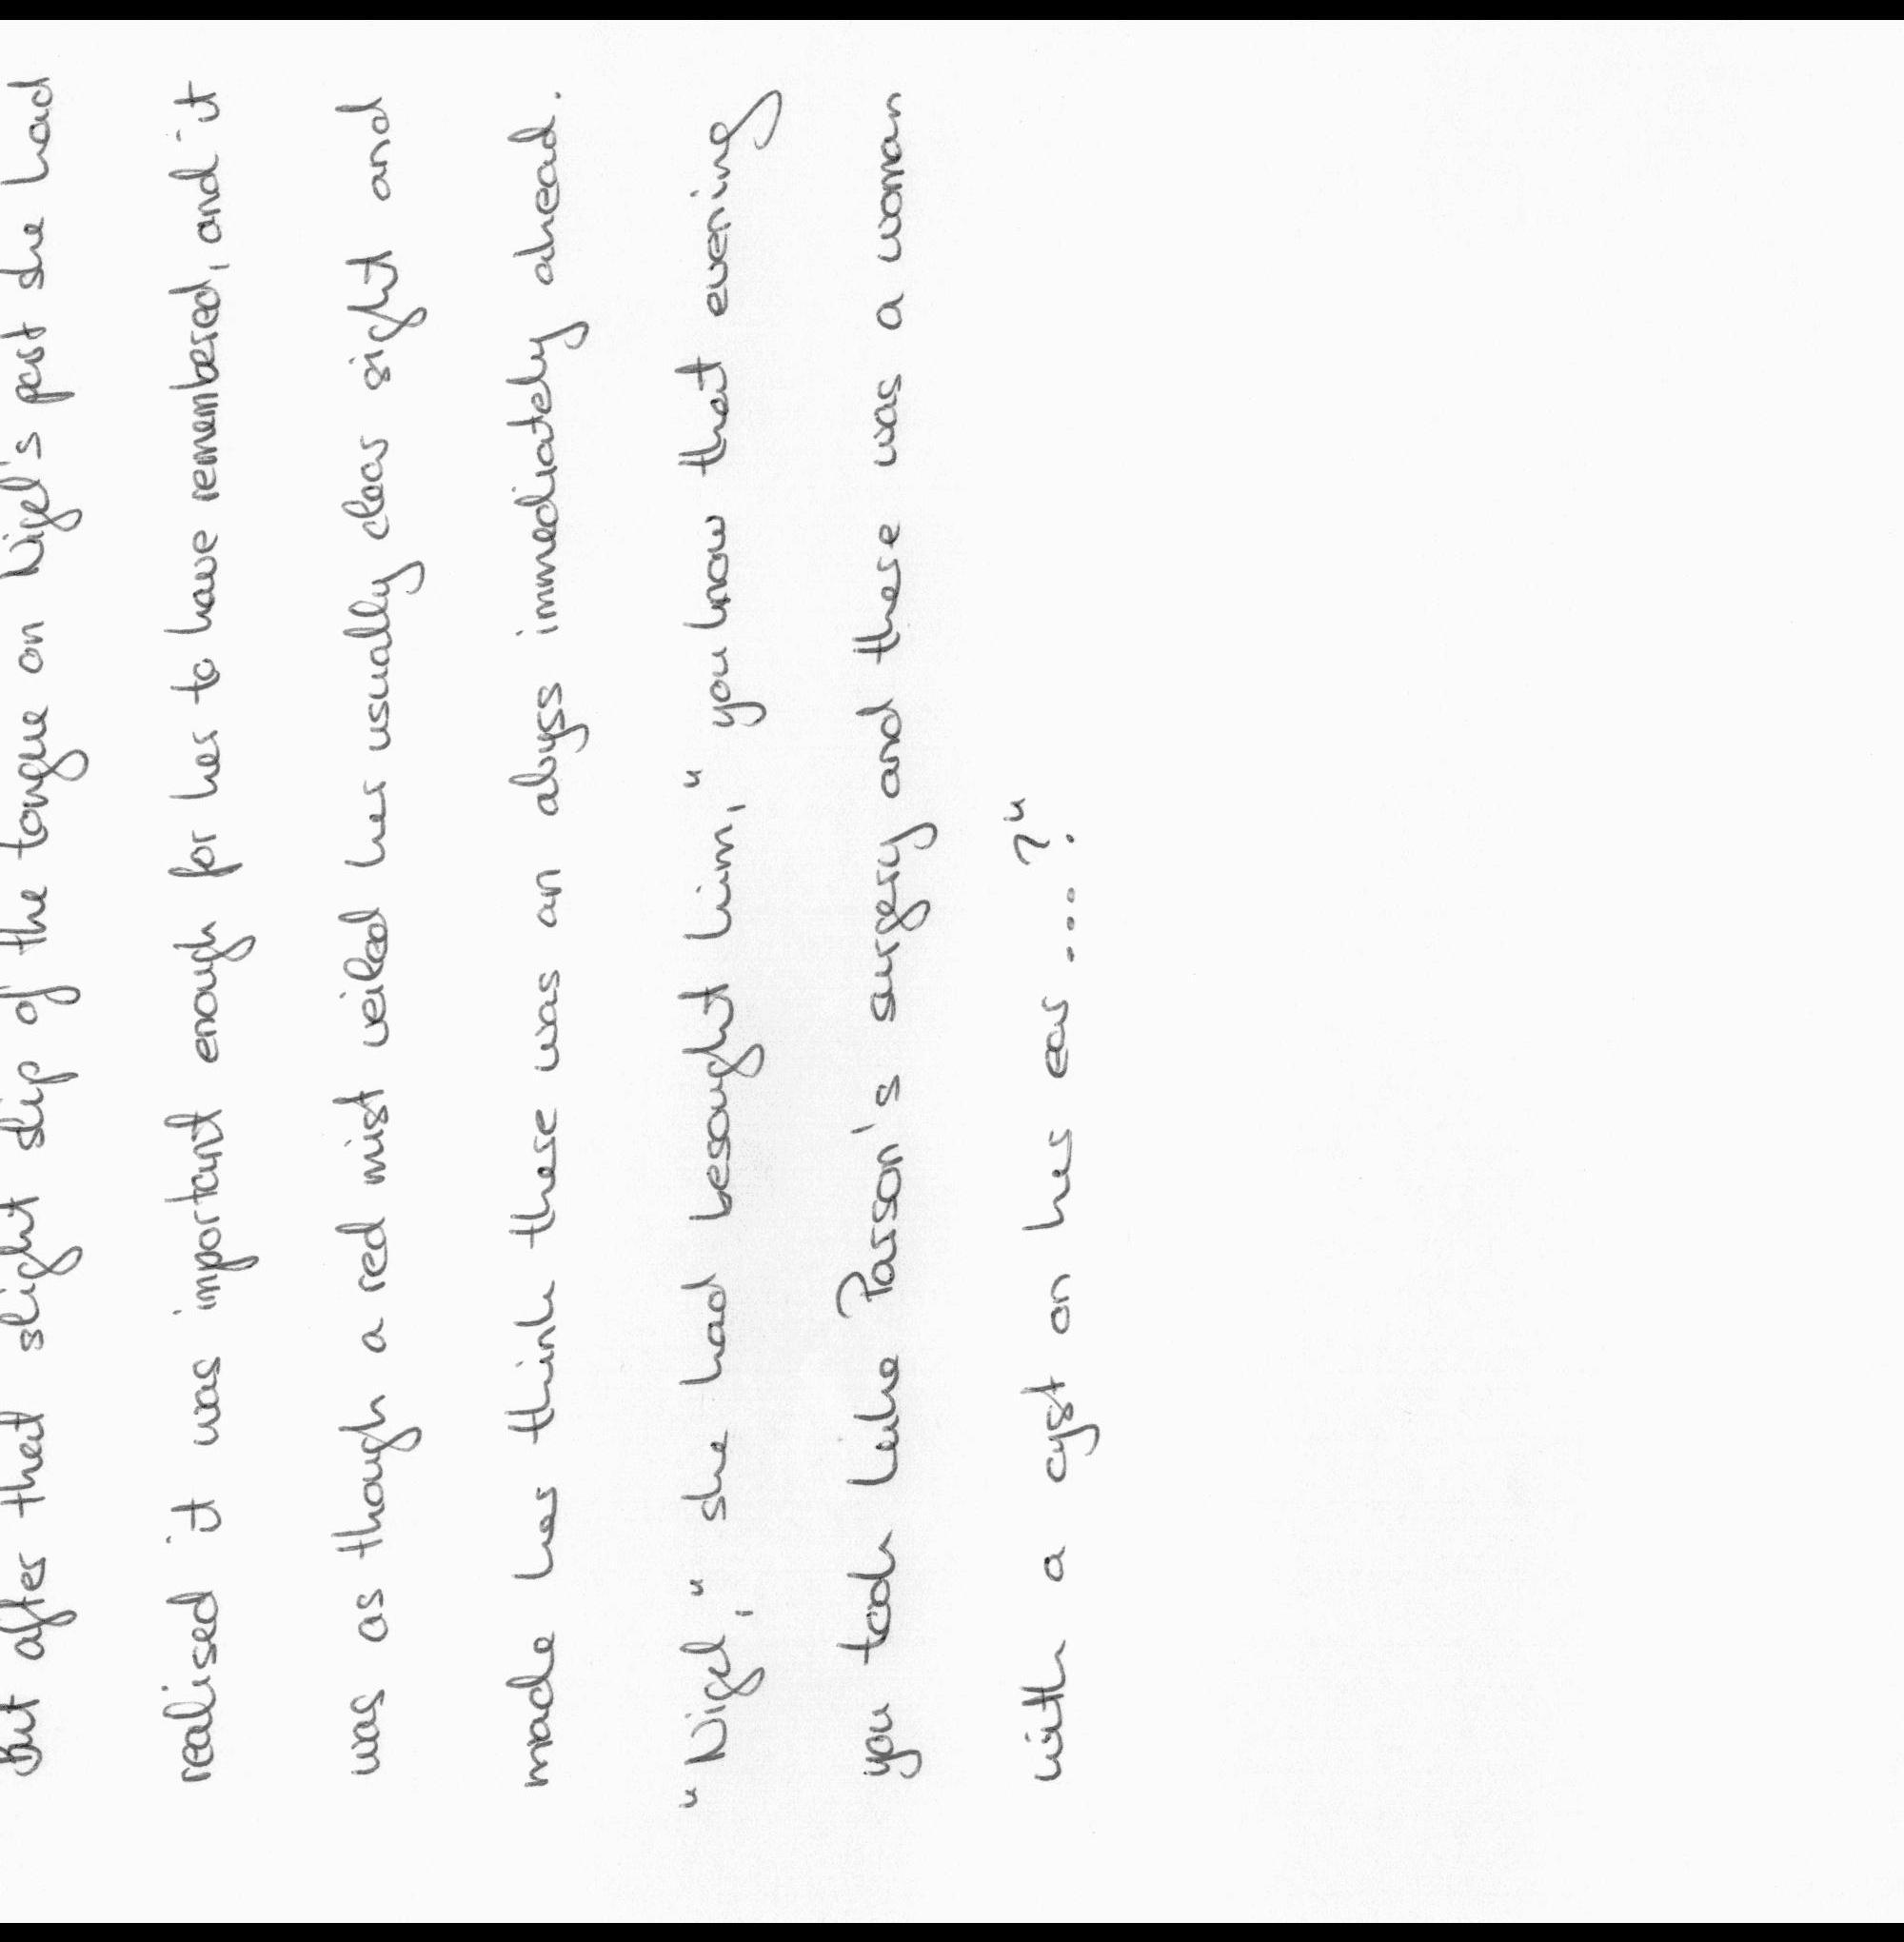 But after that slight slip of the tongue on Nigel's part she had
realised it was important enough for her to have remembered, and it
was as though a red mist veiled her usually clear sight and
made her think there was an abyss immediately ahead.
"Nigel," she had besought him, "you know that evening
you took Luke Parson's surgery and there was a woman
with a cyst on her ear....?"